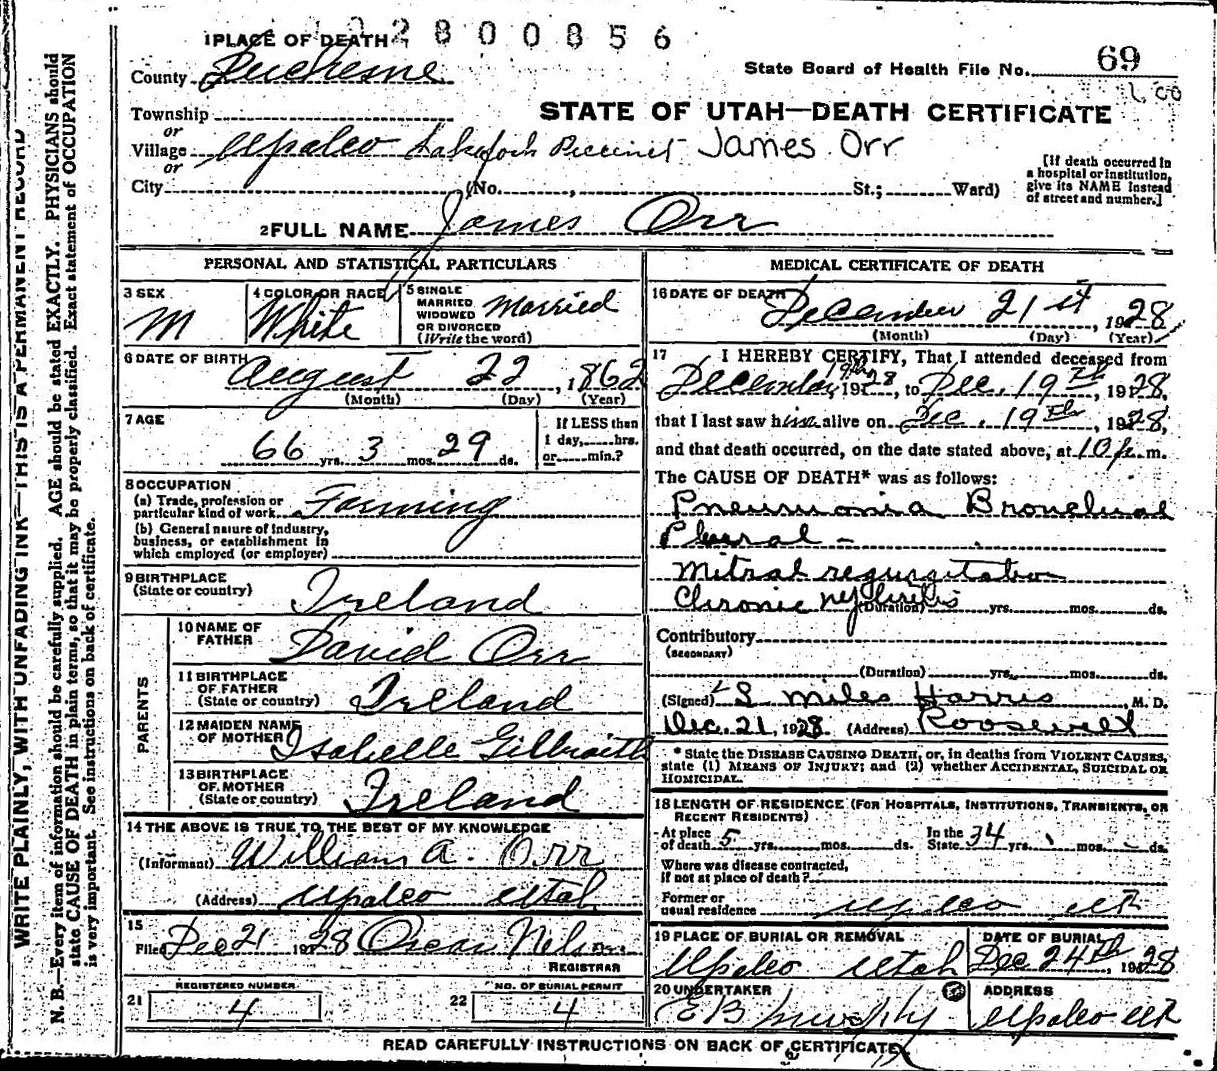 2 8 0 0 8 5 6
1 PLACE OF DEATH
County Duchesne
State Board of Health File No. 69
STATE OF UTAH—DEATH CERTIFICATE
Township
or
Village Upalco Lakefork Precinct James Orr
or
City (No. , St.; Ward)
[If death occurred in a hospital or institution, give its NAME instead of street and number.]
2 FULL NAME James Orr
PERSONAL AND STATISTICAL PARTICULARS
3 SEX M
4 COLOR OR RACE White
5 SINGLE MARRIED WIDOWED OR DIVORCED (Write the word) Married
6 DATE OF BIRTH August 22, 1862
(Month) (Day) (Year)
7 AGE
66 yrs. 3 mos. 29 ds.
If LESS than 1 day, hrs. or min.?
8 OCCUPATION
(a) Trade, profession or particular kind of work Farming
(b) General nature of industry, business, or establishment in which employed (or employer)
9 BIRTHPLACE (State or country) Ireland
PARENTS
10 NAME OF FATHER David Orr
11 BIRTHPLACE OF FATHER (State or country) Ireland
12 MAIDEN NAME OF MOTHER Isabelle Gilbraith
13 BIRTHPLACE OF MOTHER (State or country) Ireland
14 THE ABOVE IS TRUE TO THE BEST OF MY KNOWLEDGE
(Informant) William A. Orr
(Address) Upalco Utah
15
Filed Dec 21 1928 Oscar Nelson
REGISTRAR
REGISTERED NUMBER
21 4
NO. OF BURIAL PERMIT
22 4
MEDICAL CERTIFICATE OF DEATH
16 DATE OF DEATH December 21st, 1928
(Month) (Day) (Year)
17 I HEREBY CERTIFY, That I attended deceased from
December 19th, 1928, to Dec. 19th 1928,
that I last saw him alive on Dec. 19th, 1928,
and that death occurred, on the date stated above, at 10 p. m.
The CAUSE OF DEATH* was as follows:
Pneumonia Bronchial
Pleural -
Mitral regurgitation
Chronic nephritis
(Duration) yrs. mos. ds.
Contributory
(SECONDARY)
(Duration) yrs. mos. ds.
(Signed) S Miles Harris, M. D.
Dec. 21, 1928 (Address) Roosevelt
* State the DISEASE CAUSING DEATH, or, in deaths from VIOLENT CAUSES, state (1) MEANS OF INJURY; and (2) whether ACCIDENTAL, SUICIDAL OR HOMICIDAL.
18 LENGTH OF RESIDENCE (FOR HOSPITALS, INSTITUTIONS, TRANSIENTS, OR RECENT RESIDENTS)
At place of death 5 yrs. mos. ds. In the State 34 yrs. mos. ds.
Where was disease contracted, if not at place of death?
Former or usual residence Upalco Ut
19 PLACE OF BURIAL OR REMOVAL
Upalco Utah
DATE OF BURIAL
Dec 24th, 1928
20 UNDERTAKER
E B
ADDRESS
Upalco Ut
READ CAREFULLY INSTRUCTIONS ON BACK OF CERTIFICATE
WRITE PLAINLY, WITH UNFADING INK—THIS IS A PERMANENT RECORD
N. B.—Every item of information should be carefully supplied. AGE should be stated EXACTLY. PHYSICIANS should
state CAUSE OF DEATH in plain terms, so that it may be properly classified. Exact statement of OCCUPATION
is very important. See instructions on back of certificate.